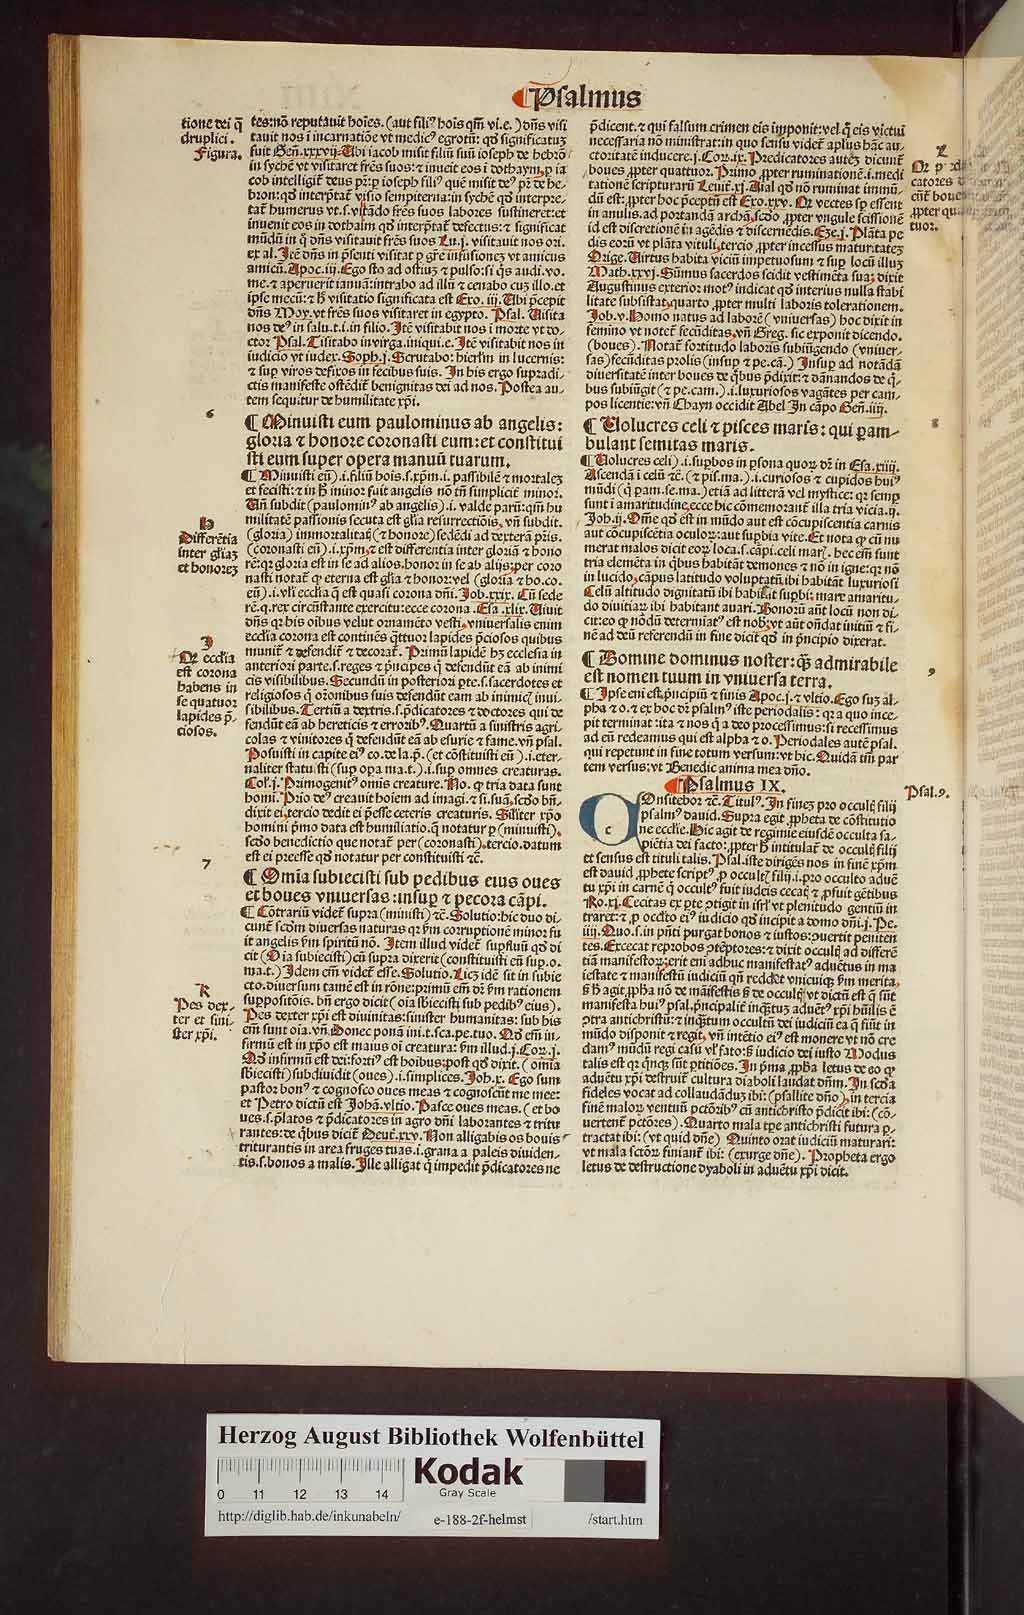 ¶ Psalmus
tione dei q̄
druplici.
Figura.
tes: nō reputauit hoīes. (aut filiꝰ hoīs qm̄ vi.e.) dn̄s visi
tauit nos ī incarnatiōe vt medicꝰ egrotū: qd̓ significatuꝫ
fuit Gen̄.xxxvij. Ubi iacob misit filiū suū ioseph de hebrō
in sychē vt visitaret frēs suos: ⁊ inuēit eos ī dothaym, ꝑ ia
cob intelligit̄ deus pr̄: ꝑ ioseph filiꝰ quē misit deꝰ pr̄ de he-
bron: qd̓ interp̄tat̄ visio sempiterna: in sychē qd̓ interpre-
tat̄ humerus vt.s. visitādo frēs suos labores sustineret: et
inuenit eos in dothaim qd̓ interp̄tat̄ defectus: ⁊ significat
mūdū in q̄ dn̄s visitauit frēs suos Lu.j. visitauit nos ori.
ex al. Itē dn̄s in p̄senti visitat ꝑ gr̄e infusioneꝫ vt amicus
amicū. Apoc.iij. Ego sto ad ostiuꝫ ⁊ pulso: si q̄s audi.vo.
me. ⁊ aperuerit ianuā: intrabo ad illū ⁊ cenabo cuꝫ illo. et
ipse mecū: ⁊ h̄ visitatio significata est Exo.iij. Ubi p̄cepit
dn̄s Moy. vt frēs suos visitaret in egypto. Psal. Visita
nos deꝰ in salu.t.i. in filio. Itē visitabit nos ī morte vt do-
ctor Psal. Visitabo in virga.iniqui.e. Itē visitabit nos in
iudicio vt iudex. Soph.j. Scrutabo: hierl̄m in lucernis:
⁊ sup viros defixos in fecibus suis. In his ergo supradi-
ctis manifeste ostēdit̄ benignitas dei ad nos. Postea au-
tem sequitur de humilitate xp̄i.
6
¶ Minuisti eum paulominus ab angelis:
gloria ⁊ honore coronasti eum: et constitui
sti eum super opera manuū tuarum.
¶ Minuisti eū) .i. filiū hoīs.s.xp̄m.i. passibilē ⁊ mortaleꝫ
et fecisti: ⁊ in h̄ minor fuit angelis nō tn̄ simplicit̄ minor.
Un̄ subdit (paulominꝰ ab angelis).i. valde parū: qm̄ hu
militatē passionis secuta est gl̄ia resurrectiōis, vn̄ subdit.
H
Differētia
inter gl̄iaꝫ
et honoreꝫ
(gloria) immortalitatē (⁊ honore) sedēdi ad dexterā pr̄is.
(coronasti eū).i.xp̄m, ⁊ est differentia inter gloriā ⁊ hono
rē: qꝛ gloria est in se ad alios, honor in se ab alijs; per coro
nasti notat̄ ꝙ eterna est gl̄ia ⁊ honor: vel (gloria ⁊ ho.co.
eū).i. vl̄i eccl̄ia q̄ est quasi corona dn̄i. Job.xxix. Cū sede
rē.q.rex circūstante exercitu: ecce corona. Esa.xlix. Viuit
dn̄s qꝛ his oībus velut ornamēto vesti, vniuersalis enim
eccl̄ia corona est continēs q̄ttuor lapides p̄ciosos quibus
I
Qr̄ eccl̄ia
est corona
habens in
se quatuor
lapides p̄-
ciosos.
munit̄ ⁊ defendit̄ ⁊ decorat̄. Primū lapidē hꝫ ecclesia in
anteriori parte.s. reges ⁊ p̄ncipes q̄ defendūt eā ab inimi
cis visibilibus. Secundū in posteriori pte.s. sacerdotes et
religiosos q̄ or̄onibus suis defendūt eam ab inimicꝭ inui-
sibilibus. Tertiū a dextris.s. p̄dicatores ⁊ doctores qui de
fendūt eā ab hereticis ⁊ erroribꝰ. Quartū a sinistris agri-
colas ⁊ vinitores q̄ defendūt eā ab esurie ⁊ fame. vn̄ psal.
Posuisti in capite eiꝰ co.de la.p̄. (et cōstituisti eū).i. eter-
naliter statuisti (sup oꝑa ma.t.).i. sup omnes creaturas.
Col.j. Primogenitꝰ omnis creature. No. ꝙ tria data sunt
homi. Prīo deꝰ creauit hoīem ad imagi. ⁊ si.suā, scd̓o bn̄-
dixit ei, tercio dedit ei p̄esse ceteris creaturis. Sil̄iter xp̄o
homini p̄mo data est humiliatio. q̄ notatur ꝑ (minuisti).
scd̓o benedictio que notat̄ per (coronasti). tercio. datum
est ei preesse qd̓ notatur per constituisti ⁊c̄.
7
¶ Omia subiecisti sub pedibus eius oues
et boues vniuersas: insuꝑ ⁊ pecora cāpi.
¶ Cōtrariū videt̄ supra (minuisti) ⁊c̄. Solutio: hic duo di-
cunt̄ scd̓m diuersas naturas qꝛ ẜm corruptionē minor fu
it angelis ẜm spiritū nō. Item illud videt̄ supfluū qd̓ di
cit (Oīa subiecisti) cū supra dixerit (constituisti eū sup.o.
ma.t.) Idem em̄ videt̄ esse. Solutio. Licꝫ idē sit in subie
cto. diuersum tamē est in rōne: primū em̄ dr̄ ẜm rationem
K
Pes dex-
ter et sini-
ster xp̄i.
suppositōis. hn̄ ergo dicit (oīa s̄biecisti sub pedibꝰ eius).
Pes dexter xp̄i est diuinitas: sinister humanitas: sub his
em̄ sunt oīa. vn̄. Donec ponā ini.t.sca.pe.tuo. Qd̓ em̄ in-
firmū est in xp̄o est maius oī creatura: ẜm illud.j.Cor.j.
Qd̓ infirmū est dei: fortiꝰ est hoībus: post qd̓ dixit. (omīa
s̄biecisti) subdiuidit (oues).i. simplices. Joh.x. Ego sum
pastor bonꝰ ⁊ cognosco oues meas ⁊ cognoscūt me mee:
et Petro dictū est Johā.vltio. Pasce oues meas. (et bo
ues.s. p̄latos ⁊ p̄dicatores in agro dn̄i laborantes ⁊ tritu
rantes: de q̄bus dicit̄ Deut.xxv. Non alligabis os bouis
triturantis in area fruges tuas.i. grana a paleis diuiden-
tis.s. bonos a malis. Ille alligat q̄ impedit p̄dicatores ne
p̄dicent. ⁊ qui falsum crimen eis imponit: vel q̄ eis victui
necessaria nō ministrat: in quo sensu videt̄ apl̄us hāc au-
ctoritatē inducere.j.Cor.ix. Predicatores auteꝫ dicunt̄
L
catores
cūt̄ boues
ꝓpter
tuor.
boues ꝓpter quattuor. Primo ꝓpter ruminationē.i. medi
tationē scripturarū Leuit.xj. Aīal qd̓ nō ruminat immū-
dū est: ꝓpter hoc p̄ceptū est Exo.xxv. Qr̄ vectes sp̄ essent
in anulis. ad portandā archā, scd̓o ꝓpter vngule scissionē
id est discretionē in agēdis ⁊ discernēdis. Eze.j. Plāta pe
dis eorū vt plāta vituli, tercio ꝓpter incessus maturitateꝫ
Orige. Virtus habita viciū impetuosum ⁊ sup locū illuꝫ
Math.xxvj. Sūmus sacerdos scidit vestimēta sua; dixit
Augustinus exterior motꝰ indicat qd̓ interius nulla stabi
litate subsistat, quarto ꝓpter multi laboris tolerationem.
Job.v. Homo natus ad laborē (vniuersas) hoc dixit in
femino vt notet̄ fecūditas, vn̄ Greg. sic exponit dicendo.
(boues). Notat̄ fortitudo laboris subiūgendo (vniuer-
sas) fecūditas prolis (insup ⁊ pe.cā.) Insup ad notādā
diuersitatē inter boues de q̄bus p̄dixit: ⁊ dānandos de q̄-
bus subiūgit (⁊ pe.cam.).i. luxuriosos vagātes per cam-
pos licentie: vn̄ Chayn occidit Abel In cāpo Gen̄.iiij.
8
¶ Uolucres celi ⁊ pisces maris: qui ꝑam-
bulant semitas maris.
¶ Uolucres celi).i. supbos in ꝑsona quorꝫ dr̄ in Esa.xiiij.
Ascendā ī celū ⁊c̄. (⁊ pis.ma.).i. curiosos ⁊ cupidos huiꝰ
mūdi (q̄ ꝑam.se.ma.) etiā ad litterā vel mystice: qꝛ semꝑ
sunt ī amaritudīe, ecce hic cōmemorant̄ illa tria vicia.ij.
Joh.ij. Om̄e qd̓ est in mūdo aut est cōcupiscentia carnis
aut cōcupiscētia oculorꝫ: aut supbia vite. Et nota ꝙ cū nu
merat malos dicit eorꝫ loca.s. cāpi. celi marꝭ. hec em̄ sunt
tria elemēta in q̄bus habitāt demones ⁊ nō in igne: qꝛ nō
in lucido, cāpus latitudo voluptatū, ibi habitāt luxuriosi
Celū altitudo dignitatū ibi habitāt supbi: mare amaritu-
do diuitiarꝫ ibi habitant auari. Bonorū aūt locū non di-
cit: eo ꝙ nōdū determinatꝰ est nobꝭ: vt aūt on̄dat initiū ⁊ fi-
nē ad deū referendū in fine dicit qd̓ in p̄ncipio dixerat.
9
¶ Domine dominus noster: qꝫ admirabile
est nomen tuum in vniuersa terra.
¶ Ipse eni est p̄ncipiū ⁊ finis Apoc.j. ⁊ vltio. Ego suꝫ al-
pha ⁊ o. ⁊ ex hoc dr̄ psalmꝰ iste periodalis: qꝛ a quo ince-
pit terminat̄: ita ⁊ nos q̄ a deo processimus: si recessimus
ad eū redeamus qui est alpha ⁊ o. Periodales autē psal.
qui repetunt in fine totum versum: vt hic. Quidā tn̄ par
tem versus: vt Benedic anima mea dn̄o.
¶ Psalmus IX.
Psal.9.
c
Onfitebor ⁊c̄. Titulꝰ. In fineꝫ pro occulꝭ filij
psalmꝰ dauid. Supra egit ꝓpheta de cōstitutio
ne eccl̄ie. Hic agit de regimie eiusdē occulta sa-
piētia dei facto: ꝓpter h̄ intitulat̄ de occulꝭ filij
et sensus est tituli talis. Psal. iste dirigēs nos in finē xp̄m
est dauid, ꝓphete scriptꝰ, ꝓ occultꝭ filij.i. pro occulto aduē
tu xp̄i in carnē q̄ occultꝰ fuit iudeis cecatꝭ ⁊ ꝓfuit gētibus
Ro.xj. Cecitas ex pte ꝯtigit in isrl̄ vt plenitudo gentiū in
traret: ⁊ ꝓ occl̄to eiꝰ iudicio qd̓ incipit a domo dn̄i.j.Pe.
iiij. Quo.s. in pn̄ti purgat bonos ⁊ iustos: ꝯuertit peniten
tes. Excecat reprobos ꝯtēptores: ⁊ dixit occulꝭ ad differē
tiā manifestorꝫ; erit eni adhuc manifestatꝰ aduētus in ma
iestate ⁊ manifestū iudiciū qn̄ reddet vnicuiqꝫ ẜm merita,
s̄ h̄ agit ꝓph̄a nō de māifestis s̄ de occulꝭ vt dictū est q̄ sūt
manifesta huiꝰ psal. p̄ncipaliē inq̄tuꝫ aduētꝰ xp̄i hūilis ē
ꝯtra antichristū: ⁊ inq̄tum occultū dei iudiciū ea q̄ fiūt in
mūdo disponit ⁊ regit, vn̄ intētio eiꝰ est monere vt nō cre
damꝰ mūdū regi casu vl̄ fato: s̄ iudicio dei iusto Modus
talis est qꝛ q̄nqꝫ sūt ptitiōes. In p̄ma ꝓph̄a letus de eo ꝙ
aduētu xp̄i destruit̄ cultura diaboli laudat dn̄m. In scd̓a
fideles vocat ad collaudāduꝫ ibi: (psallite dn̄o), in tercia
finē malorꝫ ventuū pctōribꝰ cū antichristo p̄dicit ibi: (cō-
uertent̄ pctōres). Quarto mala tpe antichristi futura ꝑ-
tractat ibi: (vt quid dn̄e) Quinto orat iudiciū maturari:
vt mala sctōrꝫ finiant̄ ibi: (exurge dn̄e). Propheta ergo
letus de destructione dyaboli in aduētu xp̄i dicit.
Herzog August Bibliothek Wolfenbüttel
0 11 12 13 14
Kodak
Gray Scale
http://diglib.hab.de/inkunabeln/ e-188-2f-helmst /start.htm